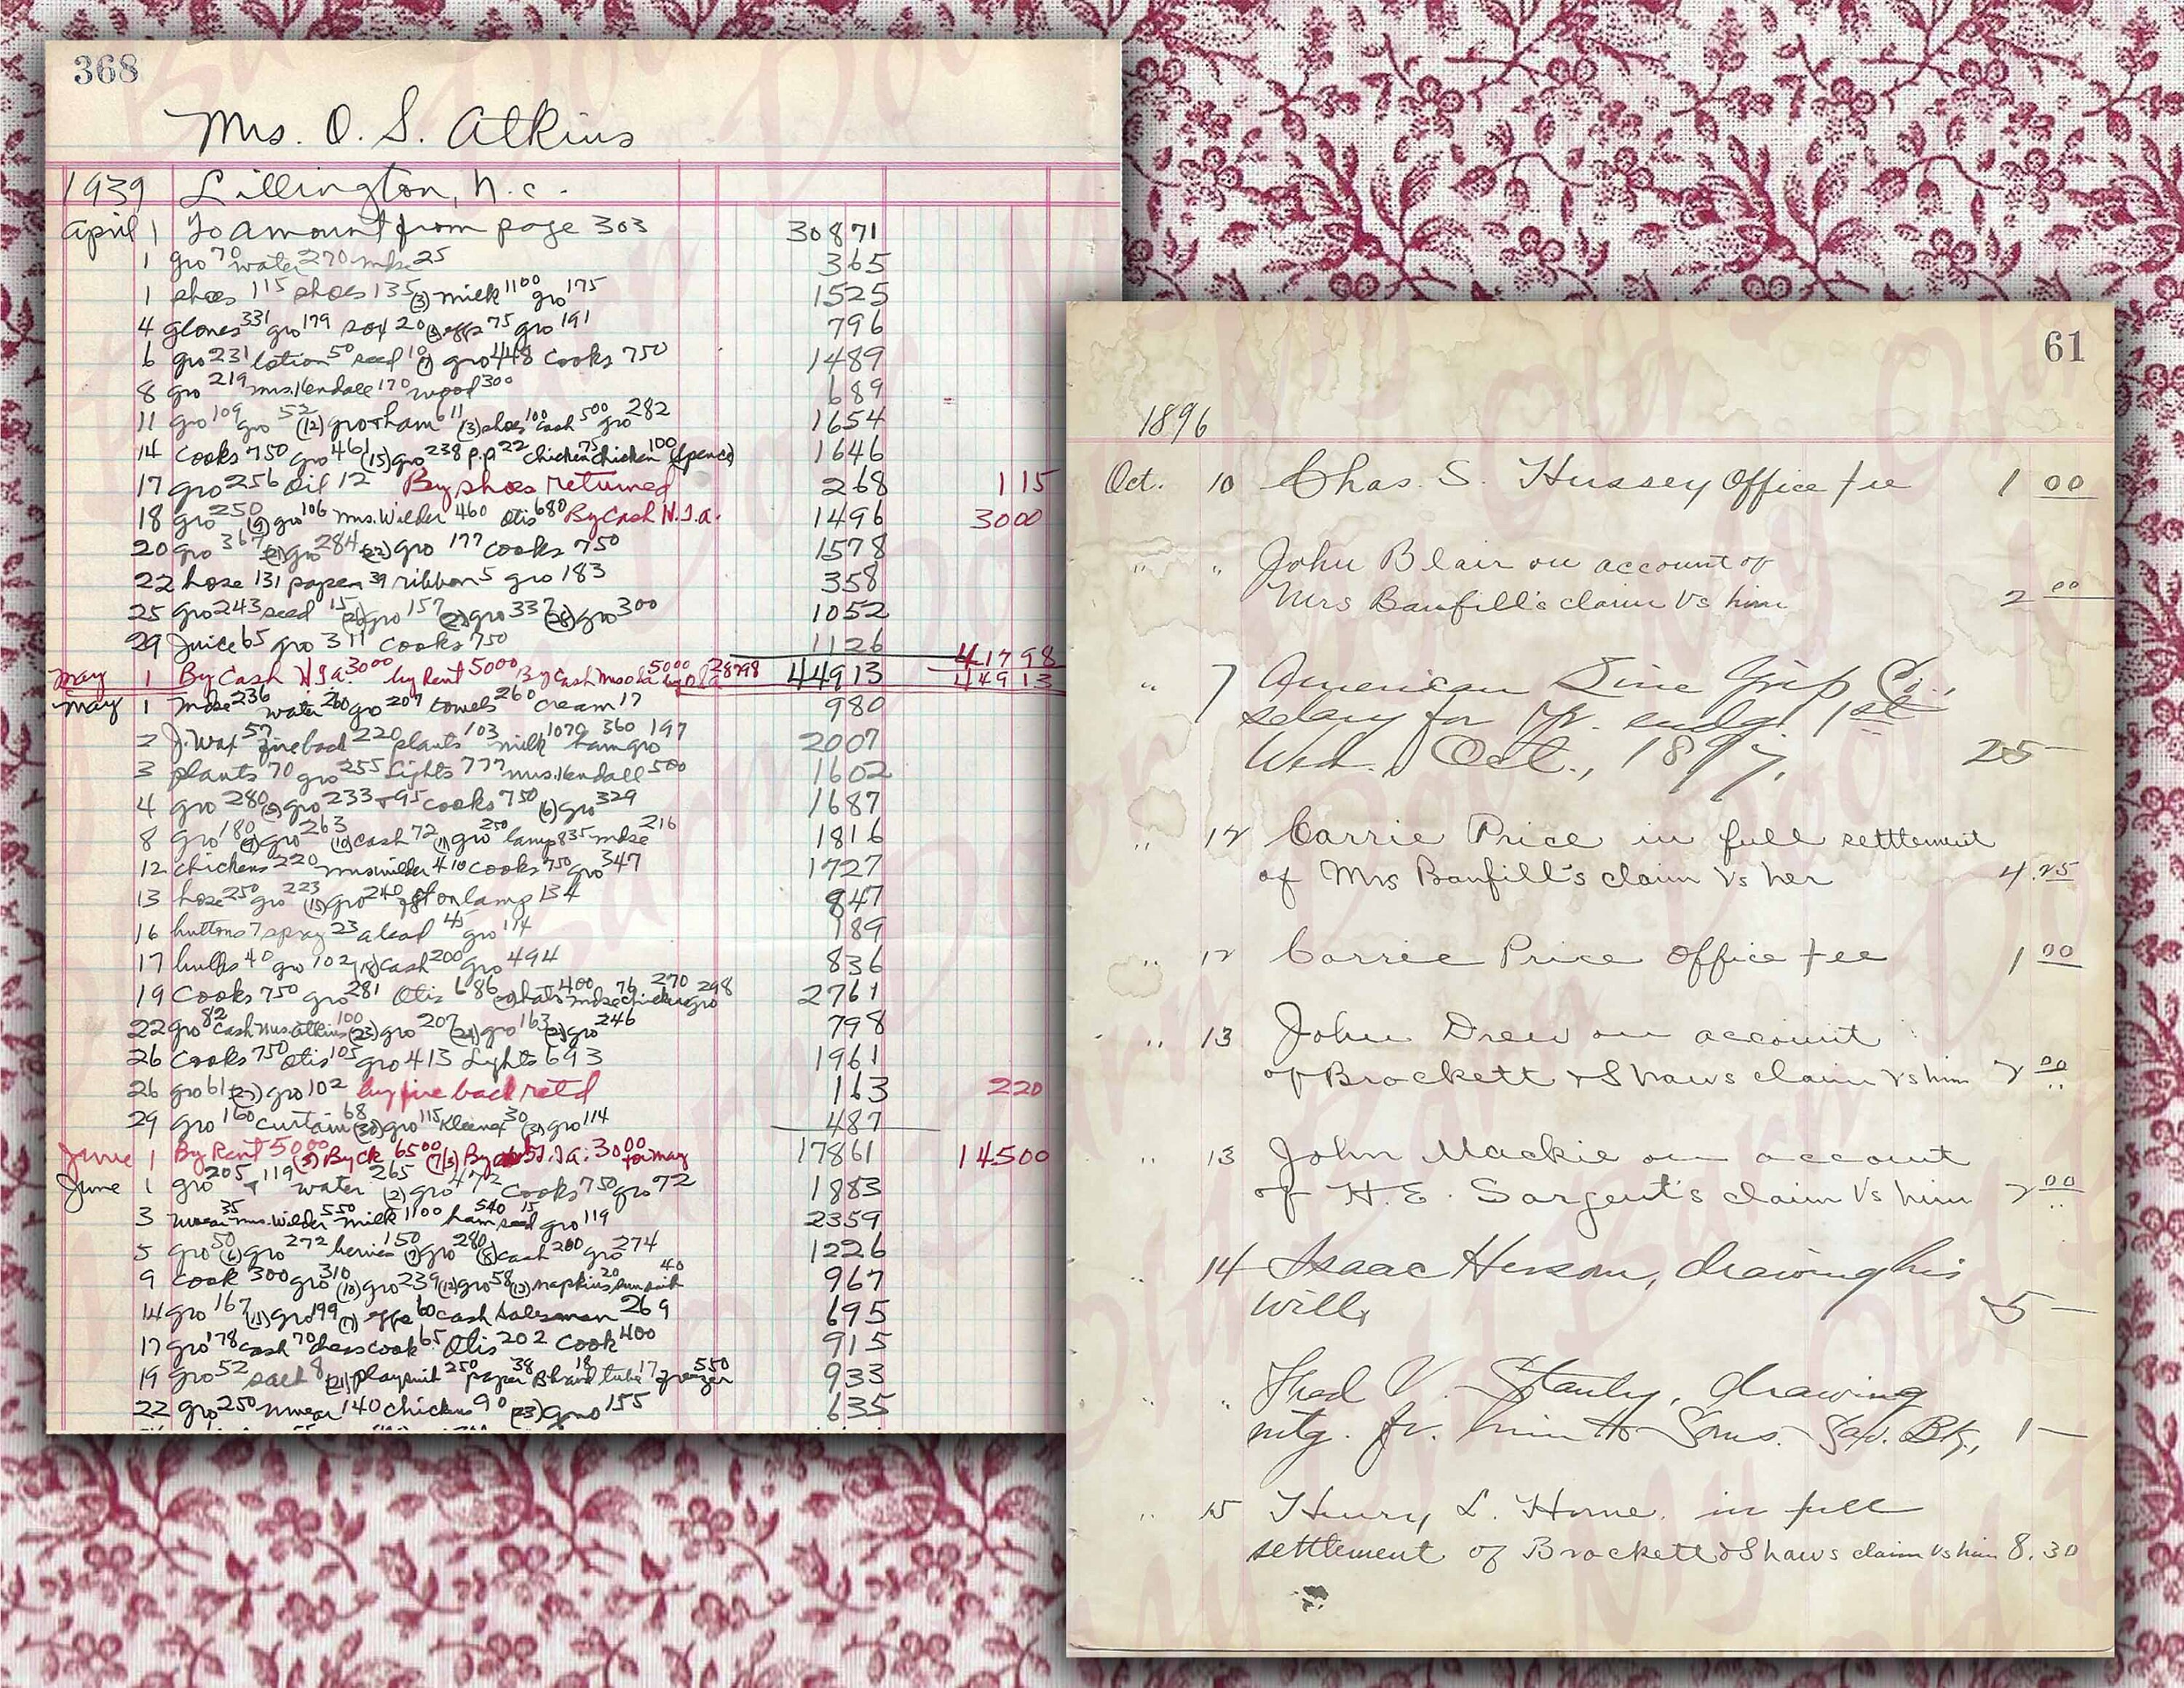 368
Mrs. O. S. Atkins
1939 Lillington, N.C.
April 1 To amount from page 303 30871
1 gro 70 water 270 mdse 25 365
1 shoes 115 shoes 135 (3) milk 1100 gro 175 1525
4 gloves 331 gro 179 sox 20 eggs 75 gro 191 796
6 gro 231 lotion 50 seed 10 (7) gro 448 Cooks 750 1489
8 gro 219 Mrs. Kendall 170 wood 300 689
11 gro 109 gro 52 (12) gro+ham 611 (13) shoes 100 cash 500 gro 282 1654
14 Cooks 750 gro 461 (15) gro 238 p.p 22 chicken 75 chicken 100 (Spence) 1646
17 gro 256 oil 12 By shoes returned 268 115
18 gro 250 (19) gro 106 Mrs. Wilder 460 Otis 680 By Cash 1496 3000
20 gro 367 (21) gro 284 (22) gro 177 Cooks 750 1578
22 hose 131 paper 39 ribbon 5 gro 183 358
25 gro 243 seed 15 gro 157 (27) gro 337 (28) gro 300 1052
29 Juice 65 gro 311 Cooks 750 1126 41798
May 1 By Cash 3000 by Rent 5000 By Cash 5000 28798 44913 44913
May 1 Mdse 236 water 260 gro 207 towels 260 cream 17 980
2 J. Wax 57 fireback 220 plants 103 milk 1070 ham 360 gro 197 2007
3 plants 70 gro 255 Lights 777 Mrs. Kendall 500 1602
4 gro 280 (5) gro 233 + 95 cooks 750 (6) gro 329 1687
8 gro 180 (9) gro 263 (10) cash 72 (11) gro 250 lamp 835 mdse 216 1816
12 chickens 220 Mrs Wilder 410 Cooks 750 gro 347 1727
13 hose 250 gro 223 (15) gro 240 on lamp 134 847
16 buttons 7 spray 23 45 gro 114 189
17 bulbs 40 gro 102 (18) cash 200 gro 494 836
19 Cooks 750 gro 281 Otis 686 hats 400 mdse 76 chickens 270 gro 298 2761
22 gro 82 cash Mrs Atkins 100 (23) gro 207 (24) gro 163 (25) gro 246 798
26 Cooks 750 Otis 105 gro 413 Lights 693 1961
26 gro 61 (27) gro 102 by fire back retd 163 220
29 gro 160 curtain 68 (30) gro 115 Kleenex 30 (31) gro 114 487
June 1 By Rent 5000 (3) By ck 6500 (7/3) By 3000 for May 17861 14500
June 1 gro 205 + 119 water 265 (2) gro 472 Cooks 750 gro 72 1883
3 35 Mrs. Wilder 550 milk 1100 ham 540 seed 15 gro 119 2359
5 gro 50 (6) gro 272 berries 150 (7) gro 280 (8) cash 200 gro 274 1226
9 Cook 300 gro 310 (10) gro 239 (12) gro 58 (13) napkins 20 sun suit 40 967
14 gro 167 (15) gro 199 eggs 60 cash salesman 269 695
17 gro 178 cash 70 cook 65 Otis 202 Cook 400 915
19 gro 52 salt 8 (21) playsuit 250 paper 38 18 tube 17 freezer 550 933
22 gro 250 140 chicken 90 (23) gro 155 635
61
1896
Oct. 10 Chas. S. Hussey Office fee 1 00
" " John Blair on account of
Mrs Banfill's claim Vs him 2 00
" 7 American Line Grip Co.,
salary for Yr. endg. 1st
Wed. Oct., 1897. 25 —
" 12 Carrie Price in full settlement
of Mrs Banfill's claim Vs her 4.25
" 12 Carrie Price Office fee 1 00
" 13 John Drew on account
of Brockett & Shaws claim vs him 2 00
" 13 John Mackie on account
of H. E. Sargent's claim Vs him 2 00
" 14 Isaac Hersom, drawing his
will, 5 —
" " Thad V. Stanley, drawing
mtg. fr. him to Soms. Sav. Bk, 1 —
" 15 Henry L. Horne, in full
settlement of Brockett & Shaws claim vs him 8.30